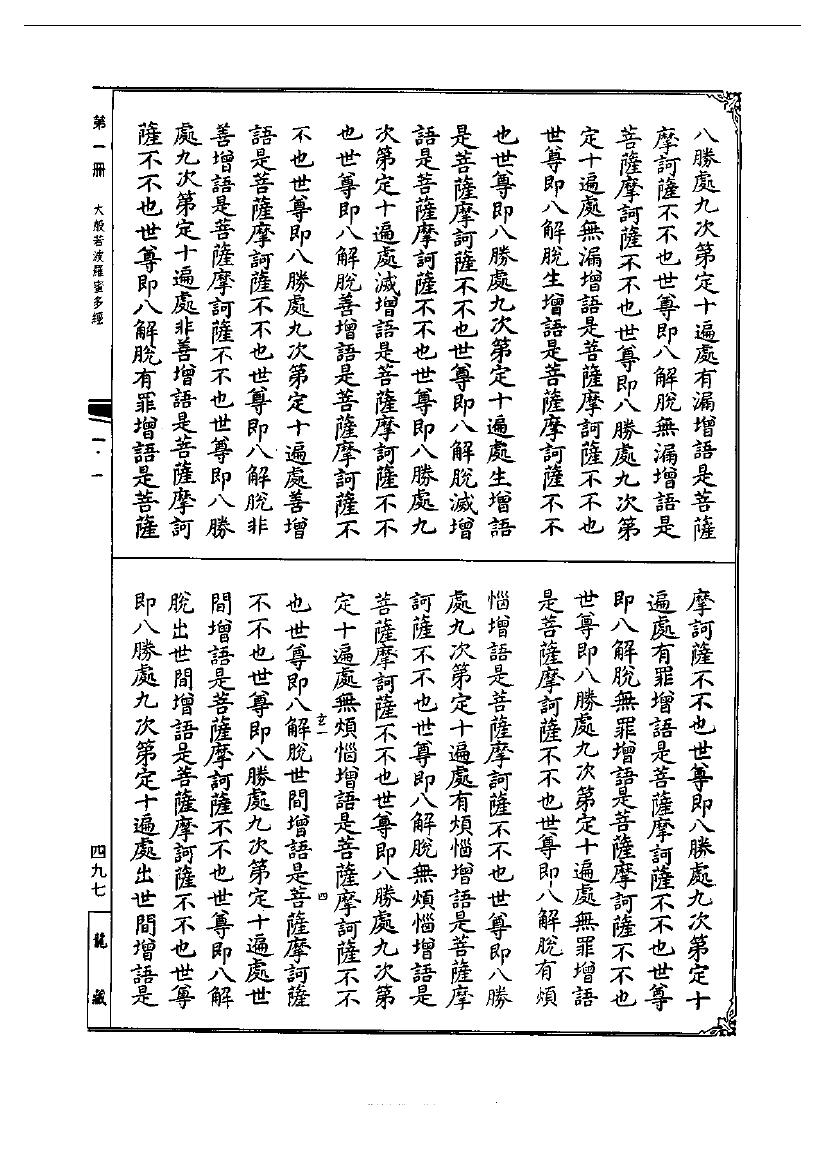 八勝處九次第定十遍處有漏增語是菩薩
摩訶薩不不也世尊即八解脫無漏增語是
菩薩摩訶薩不不也世尊即八勝處九次第
定十遍處無漏增語是菩薩摩訶薩不不也
世尊即八解脫生增語是菩薩摩訶薩不不
也世尊即八勝處九次第定十遍處生增語
是菩薩摩訶薩不不也世尊即八解脫滅增
語是菩薩摩訶薩不不也世尊即八勝處九
次第定十遍處滅增語是菩薩摩訶薩不不
也世尊即八解脫善增語是菩薩摩訶薩不
不也世尊即八勝處九次第定十遍處善增
語是菩薩摩訶薩不不也世尊即八解脫非
善增語是菩薩摩訶薩不不也世尊即八勝
處九次第定十遍處非善增語是菩薩摩訶
薩不不也世尊即八解脫有罪增語是菩薩
摩訶薩不不也世尊即八勝處九次第定十
遍處有罪增語是菩薩摩訶薩不不也世尊
即八解脫無罪增語是菩薩摩訶薩不不也
世尊即八勝處九次第定十遍處無罪增語
是菩薩摩訶薩不不也世尊即八解脫有煩
惱增語是菩薩摩訶薩不不也世尊即八勝
處九次第定十遍處有煩惱增語是菩薩摩
訶薩不不也世尊即八解脫無煩惱增語是
菩薩摩訶薩不不也世尊即八勝處九次第
定十遍處無煩惱增語是菩薩摩訶薩不不
玄二 四
也世尊即八解脫世間增語是菩薩摩訶薩
不不也世尊即八勝處九次第定十遍處世
間增語是菩薩摩訶薩不不也世尊即八解
脫出世間增語是菩薩摩訶薩不不也世尊
即八勝處九次第定十遍處出世間增語是
第一冊 大般若波羅蜜多經
一·一
四九七
龍藏